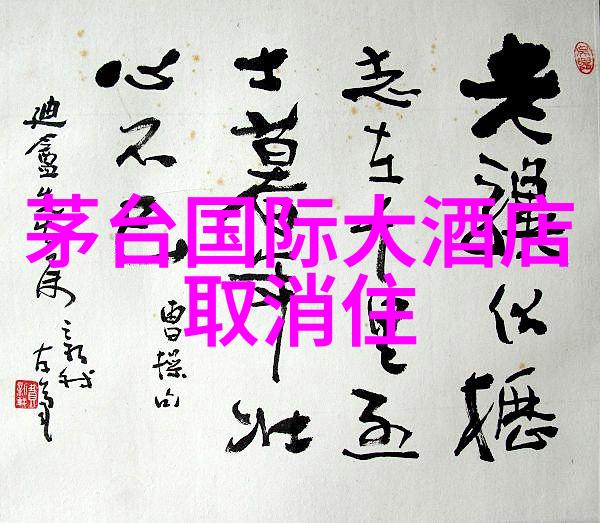 茅台国际大酒店
取消住
老驥伏櫪
志在千里烈
士暮年壮
心不已
曹操句